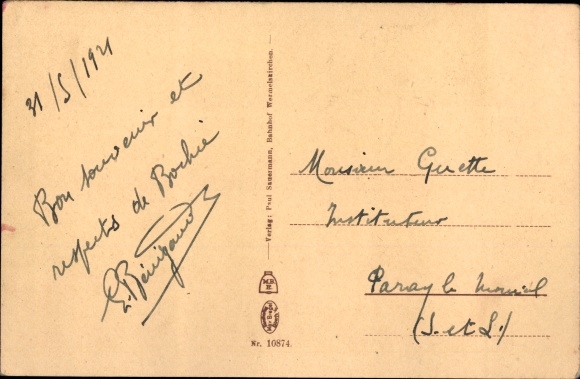 31/5/1921
Bon souvenir et
respects de Bochie
E. Bénigaud
Verlag: Paul Sauermann, Bahnhof Wermelskirchen.
Nr. 10874.
Monsieur Gerette
Instituteur
Paray le Monial
(S. et L.)